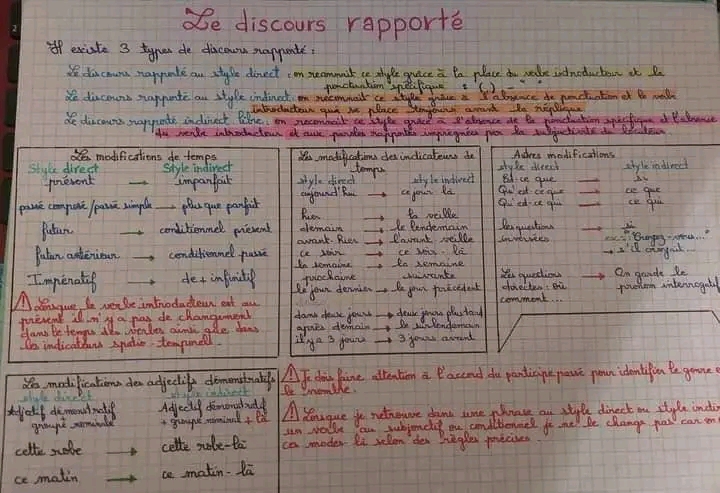 Le discours rapporté
Il existe 3 types de discours rapporté :
Le discours rapporté au style direct : on reconnait ce style grâce à la place du verbe introducteur et la
ponctuation spécifique : (,) - " "
Le discours rapporté au style indirect : on reconnait ce style grâce à l'absence de ponctuation et le verbe
introducteur qui se place toujours avant la réplique
Le discours rapporté indirect libre : on reconnait ce style grâce à l'absence de la ponctuation spécifique et l'absence
du verbe introducteur et aux paroles rapportées imprégnées par la subjectivité du locuteur
Les modifications de temps
Style direct → Style indirect
présent → imparfait
passé composé/passé simple → plus que parfait
futur → conditionnel présent
futur antérieur → conditionnel passé
Impératif → de + infinitif
⚠ Lorsque le verbe introducteur est au
présent il n'y a pas de changement
dans le temps des verbes ainsi que dans
les indicateurs spatio-temporels.
Les modifications des indicateurs de
temps
style direct → style indirect
aujourd'hui → ce jour là
hier → la veille
demain → le lendemain
avant-hier → l'avant veille
ce soir → ce soir-là
la semaine → la semaine
prochaine suivante
le jour dernier → le jour précédent
dans deux jours → deux jours plus tard
après demain → le surlendemain
il y a 3 jours → 3 jours avant
Autres modifications
style direct → style indirect
Est-ce que → si
Qu'est-ce que → ce que
Qu'est-ce qui → ce qui
les questions → si
inversées ex: "Croyez-vous..."
→ s'il croyait...
Les questions → On garde le
directes: où pronom interrogatif
comment...
Les modifications des adjectifs démonstratifs
style direct style indirect
Adjectif démonstratif Adjectif démonstratif
groupe nominale + groupe nominal + là
cette robe → cette robe-là
ce matin → ce matin-là
⚠ Je dois faire attention à l'accord du participe passé pour identifier le genre e
le nombre.
⚠ Lorsque je retrouve dans une phrase au style direct ou style indir
un verbe au subjonctif ou conditionnel je ne le change pas car on
ces modes-là selon des règles précises.